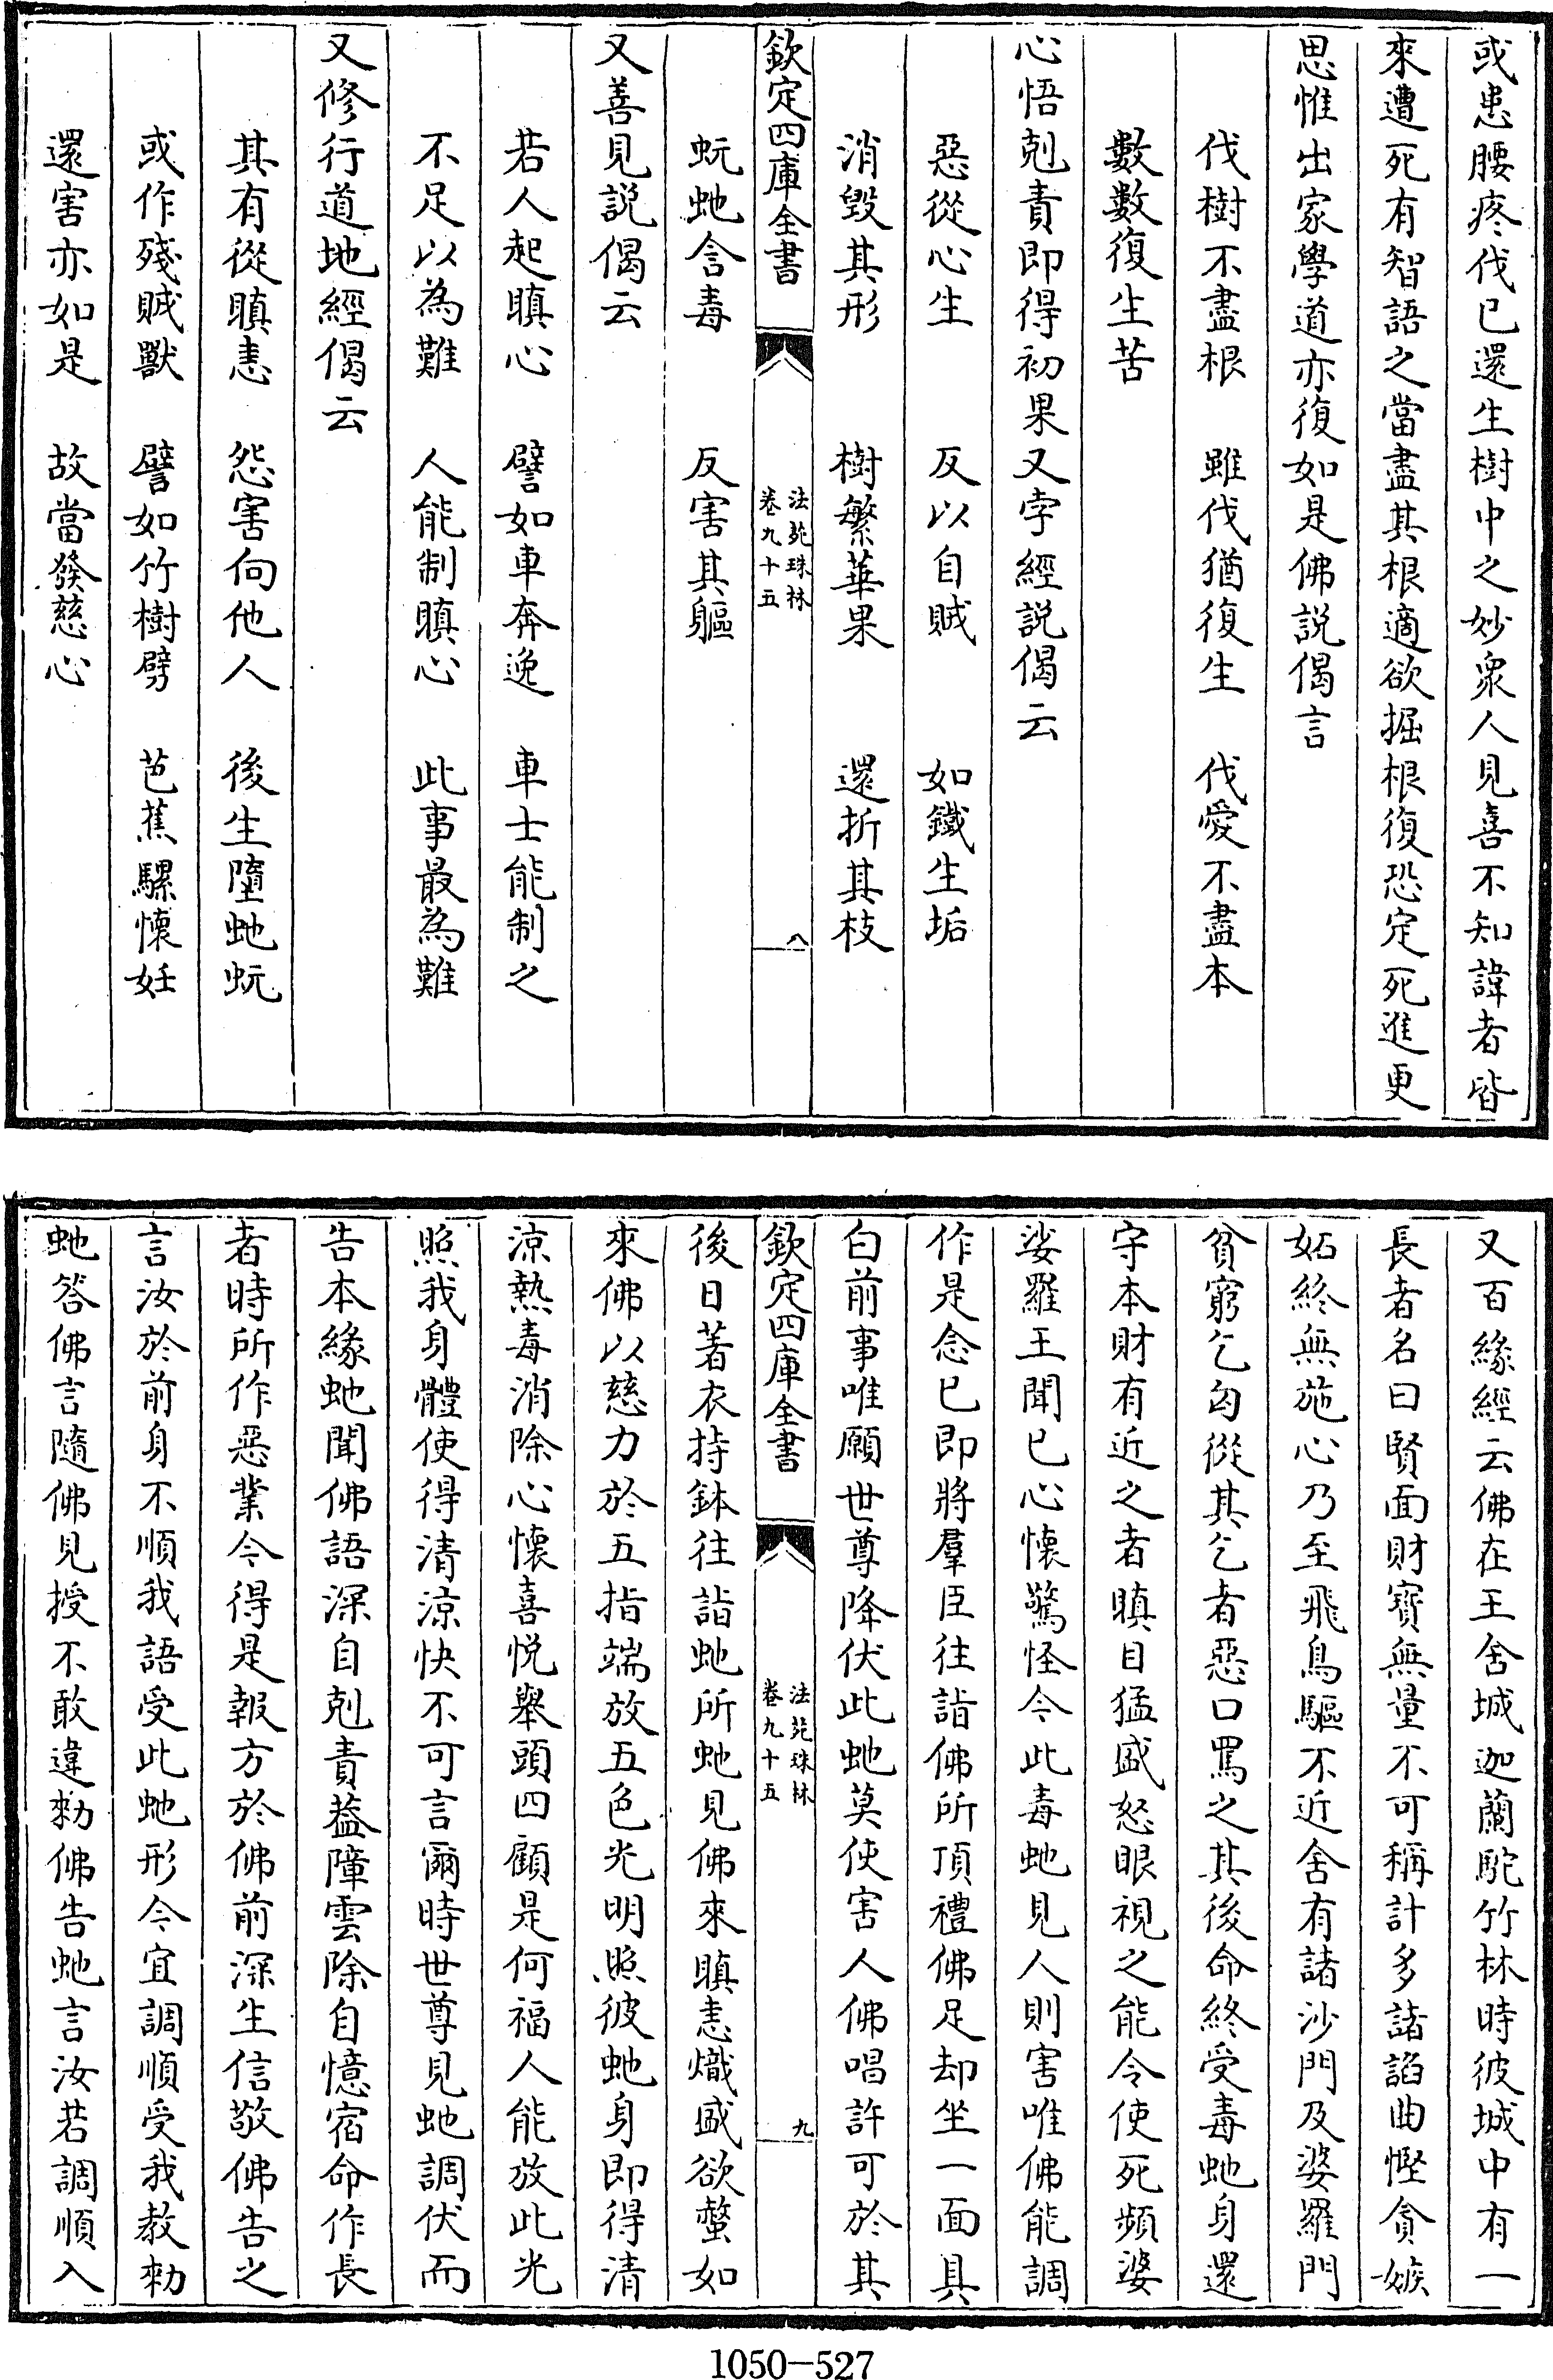 或患腰疼伐已還生樹中之妙衆人見喜不知諱者皆
來遭死有智語之當盡其根適欲掘根復恐定死進更
思惟出家學道亦復如是佛説偈言
伐樹不盡根　雖伐猶復生　伐愛不盡本
數數復生苦
心悟剋責即得初果又孛經説偈云
惡從心生　反以自賊　如鐵生垢
消毀其形　樹繁華果　還折其枝
欽定四庫全書　法苑珠林卷九十五　八
蚖虵含毒　反害其軀
又善見説偈云
若人起瞋心　譬如車奔逸　車士能制之
不足以為難　人能制瞋心　此事最為難
又修行道地經偈云
其有從瞋恚　怨害向他人　後生墮虵蚖
或作殘賊獸　譬如竹樹劈　芭蕉騾懷妊
還害亦如是　故當發慈心
又百緣經云佛在王舍城迦蘭䭾竹林時彼城中有一
長者名曰賢面財寶無量不可稱計多諸諂曲慳貪嫉
妬終無施心乃至飛鳥驅不近舍有諸沙門及婆羅門
貧窮乞匃從其乞者惡口罵之其後命終受毒虵身還
守本財有近之者瞋目猛盛怒眼視之能令使死頻婆
娑羅王聞已心懷驚怪今此毒虵見人則害唯佛能調
作是念已即將羣臣往詣佛所頂禮佛足却坐一面具
白前事唯願世尊降伏此虵莫使害人佛唱許可於其
欽定四庫全書　法苑珠林卷九十五　九
後日著衣持鉢往詣虵所虵見佛來瞋恚熾盛欲螫如
來佛以慈力於五指端放五色光明照彼虵身即得清
涼熱毒消除心懷喜悦舉頭四顧是何福人能放此光
照我身體使得清涼快不可言爾時世尊見虵調伏而
告本緣虵聞佛語深自剋責葢障雲除自憶宿命作長
者時所作惡業今得是報方於佛前深生信敬佛告之
言汝於前身不順我語受此虵形今宜調順受我教勑
虵答佛言隨佛見授不敢違勑佛告虵言汝若調順入
1050—527